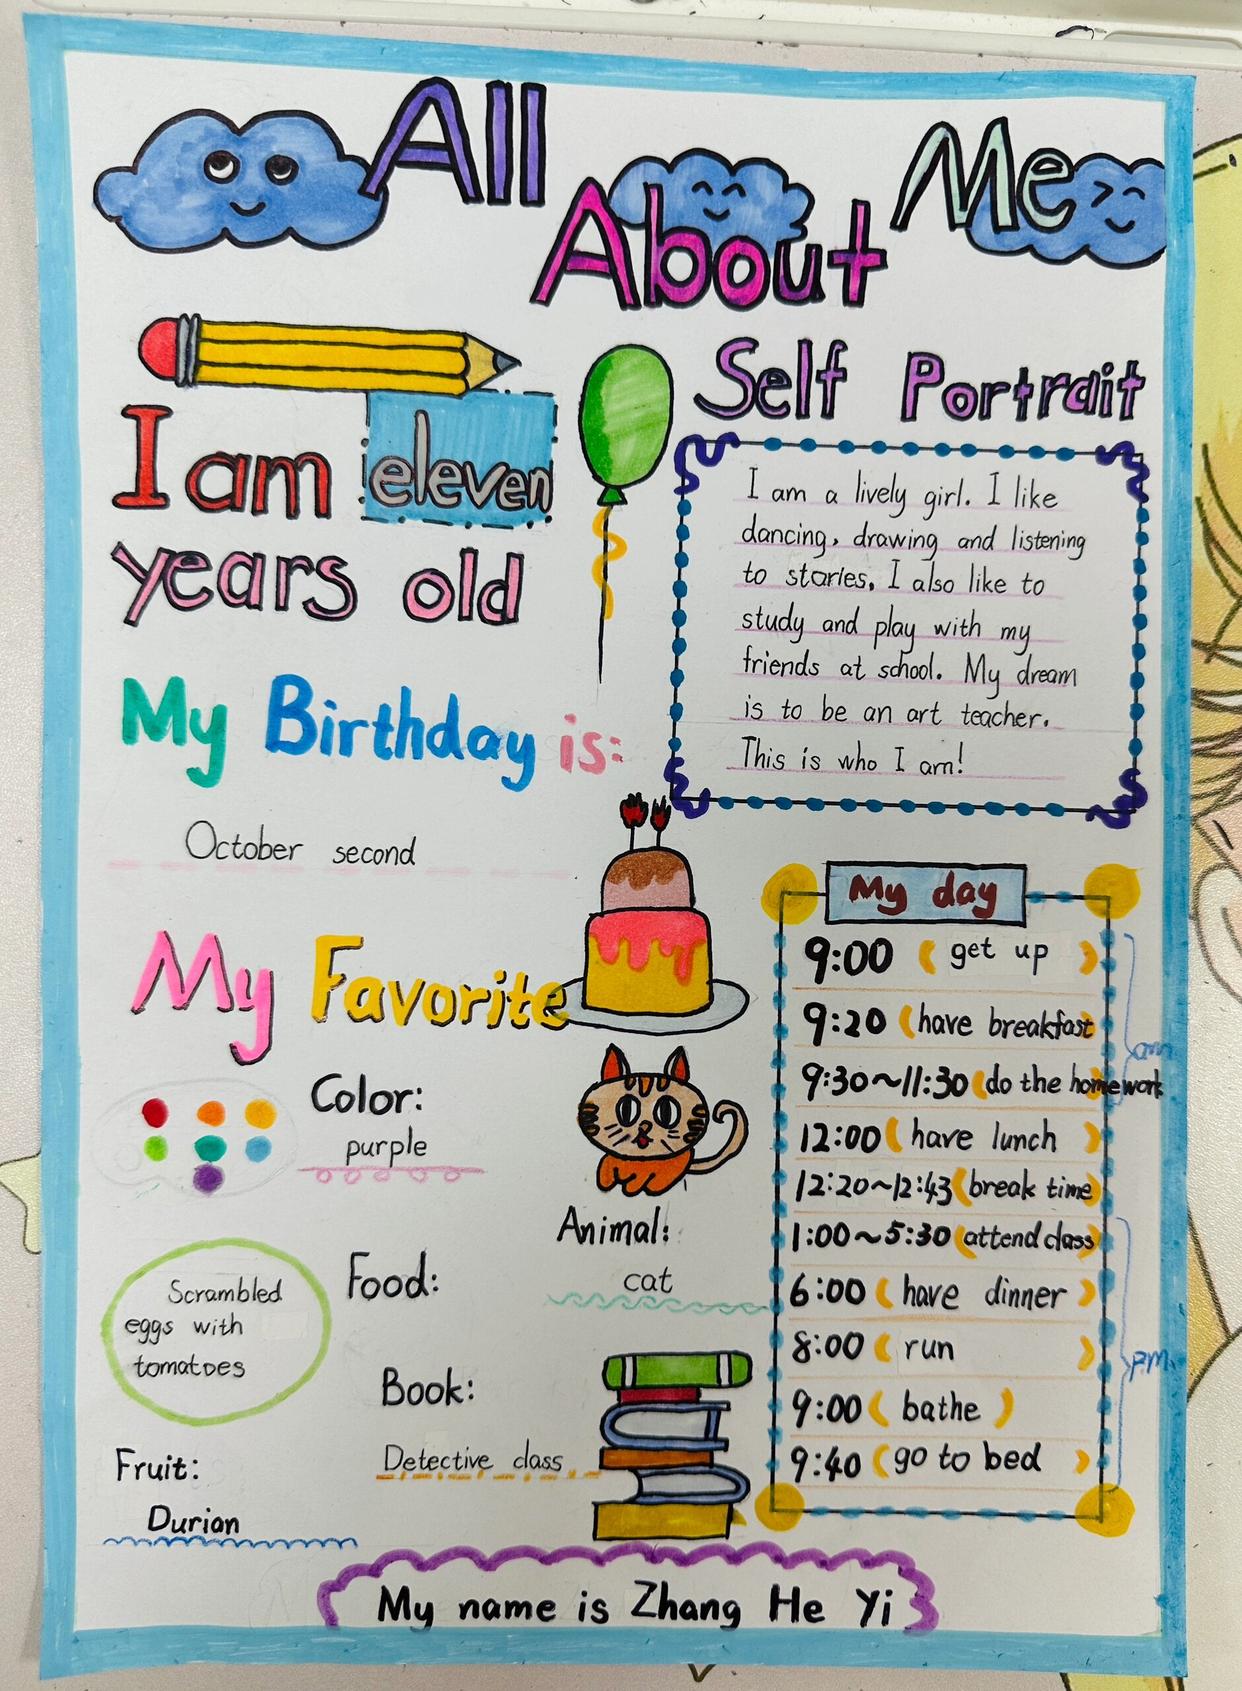 All About Me
I am eleven
years old
My Birthday is:
October second
Self Portrait
I am a lively girl. I like
dancing, drawing and listening
to stories. I also like to
study and play with my
friends at school. My dream
is to be an art teacher.
This is who I am!
My Favorite
Color:
purple
Animal:
cat
Food:
Scrambled
eggs with
tomatoes
Book:
Detective class
Fruit:
Durian
My day
9:00 ( get up )
9:20 (have breakfast)
9:30~11:30 (do the homework
am
12:00 ( have lunch )
12:20~12:43 (break time)
1:00~5:30 (attend class)
6:00 ( have dinner )
8:00 ( run )
p.m.
9:00 ( bathe )
9:40 (go to bed )
My name is Zhang He Yi